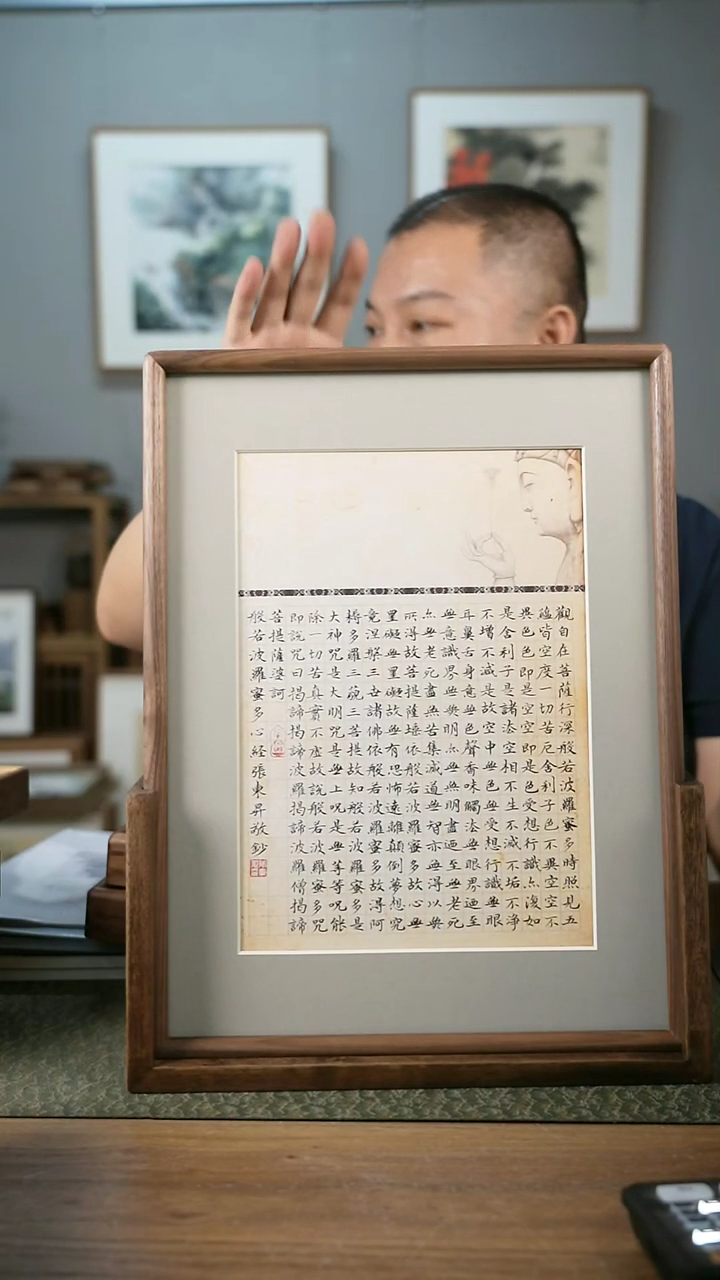 觀自在菩薩行深般若波羅蜜多時照見五
蘊皆空度一切苦厄舍利子色不異空空不
異色色即是空空即是色受想行識亦復如
是舍利子是諸法空相不生不滅不垢不淨
不增不減是故空中無色無受想行識無眼
耳鼻舌身意無色聲香味觸法無眼界迺至
無意識界無無明亦無無明盡迺至無老死
亦無老死盡無苦集滅道無智亦無得以無
所得故菩提薩埵依般若波羅蜜多故心無
罣礙無罣礙故無有恐怖遠離顛倒夢想究
竟涅槃三世諸佛依般若波羅蜜多故得阿
耨多羅三藐三菩提故知般若波羅蜜多是
大神咒是大明咒是無上呪是無等等呪能
除一切苦真實不虛故說般若波羅蜜多咒
即說咒曰揭諦揭諦波羅揭諦波羅僧揭諦
菩提薩婆訶
般若波羅蜜多心經張東昇敬鈔